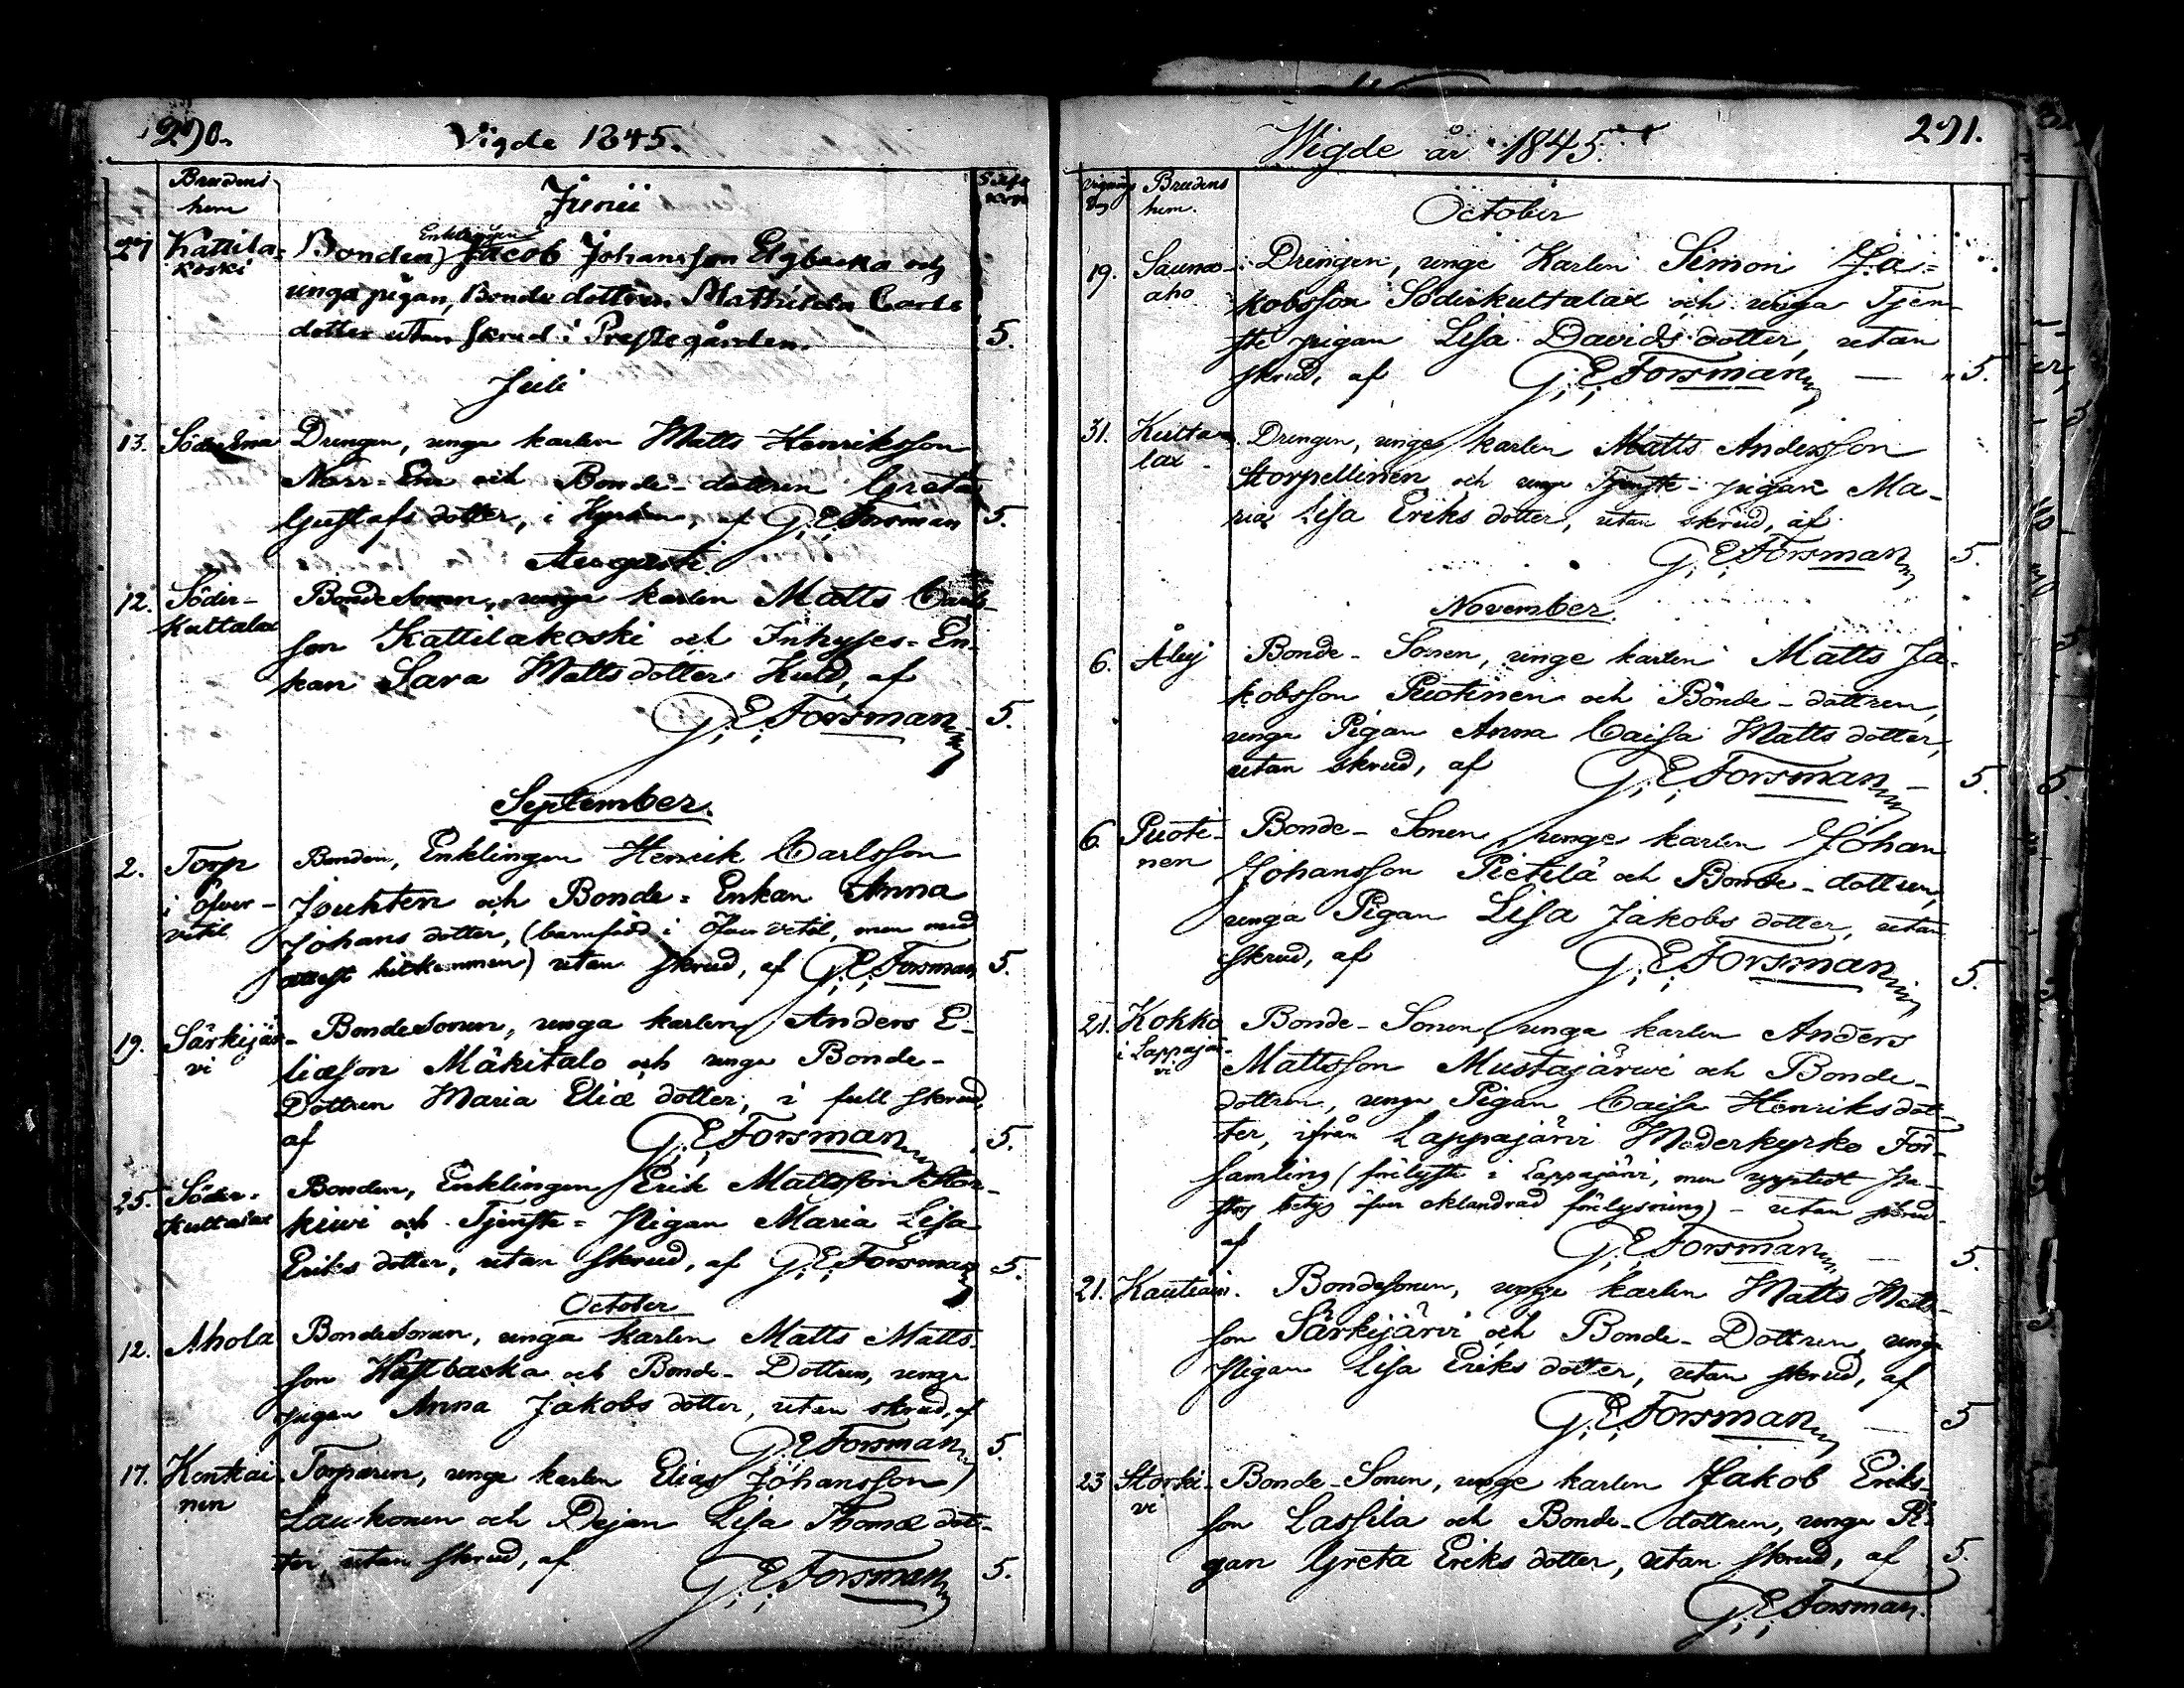 290.
Vigde 1845.
Brudens
hem
Junii
27 Kattila-
koski
Enklingen
Bonden, Jacob Johansson Elgbacka och
unga pigan, Bonde dottren Mathilda Carls
dotter utan skrud i Prestegården. 5.
Juli
13. Söder Ena Drengen, unge karlen Matts Henriksson
Norr-Ena och Bonde-dottren Greta
Gustafs dotter, i Kyrkan, af G. E. Forsman 5.
Augusti.
12. Söder-
kuttalax
BondeSonen, unge karlen Matts Carls-
son Kattilakoski och Inhyses-En-
kan Sara Mattsdotter Kuld, af
G. E. Forsman 5.
September.
2. Torp
i Öfver-
vetil
Bonden, Enklingen Henrik Carlsson
Jouhten och Bonde-Enkan Anna
Johans dotter, (barnfödd i Öfvervetil, men med
attest hitkommen) utan skrud, af G. E. Forsman 5.
19. Särkijär-
vi
BondeSonen, unga karlen Anders E-
liæson Mäkitalo och unga Bonde-
Dottren Maria Eliæ dotter, i full skrud,
af G. E. Forsman 5.
25. Söder-
kuttalax
Bonden, Enklingen Erik Mattsson Stor-
kiwi och Tjenste-Pigan Maria Lisa
Eriks dotter, utan skrud, af G. E. Forsman 5.
October
12. Ahola BondeSonen, unga karlen Matts Matts-
son Wästbacka och Bonde-Dottren, unga
pigan Anna Jakobs dotter, utan skrud, af
G. E. Forsman 5.
17. Kentkai
nen
Torparen, unge karlen Elias Johansson
Laukonen och Pejan Lisa Thomæ dot-
ter, utan skrud, af G. E. Forsman 5.
Wigde år 1845. 291.
Vignings
dag
Brudens
hem.
October
19. Sauna-
aho
Drengen, unge Karlen Simon Ja-
kobsson Söderkultalax och unga Tjen-
ste pigan Lisa Davids dotter, utan
skrud, af G. E. Forsman 5.
31. Kulta-
lax
Drengen, unge karlen Matts Andersson
Storpellinen och unga Tjenste-pigan Ma-
ria Lisa Eriks dotter, utan skrud, af
G. E. Forsman 5.
November.
6. Åbyj Bonde-Sonen, unge karlen Matts Ja-
kobsson Puotinen och Bonde-dottren,
unga Pigan Anna Caisa Matts dotter,
utan skrud, af G. E. Forsman 5.
6. Puoti-
nen
Bonde-Sonen, unge karlen Johan
Johansson Pietilä och Bonde-dottren,
unga Pigan Lisa Jakobs dotter, utan
skrud, af G. E. Forsman 5.
21. Kokko
i Lappajär-
vi
Bonde-Sonen, unga karlen Anders
Mattsson Mustajärwi och Bonde-
dottren, unga Pigan Caisa Henriks dot-
ter, ifrån Lappajärvi Moderkyrko För-
samling (förelyste i Lappajärvi, men upptedt Pa-
stors betyg öfver oklandrad förelysning) - utan skrud
af G. E. Forsman 5.
21. Kautiain. Bondesonen, unge karlen Matts Matts-
son Särkijärvi och Bonde-Dottren, unga
Pigan Lisa Eriks dotter, utan skrud, af
G. E. Forsman 5
23 Storki-
vi
Bonde-Sonen, unge karlen Jakob Eriks-
son Lassila och Bonde-dottren, unga Pi-
gan Greta Eriks dotter, utan skrud, af 5.
G. E. Forsman.